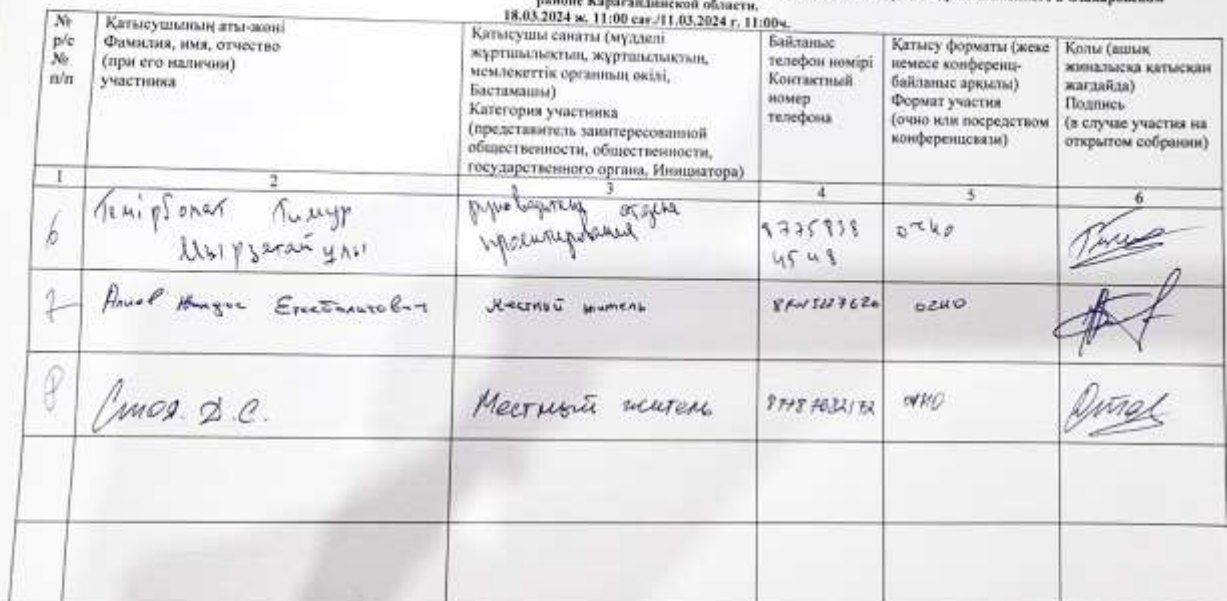 районе Карагандинской области,
18.03.2024 ж. 11:00 сағ./11.03.2024 г. 11:00ч.
№
р/с
№
п/п
Қатысушының аты-жөні
Фамилия, имя, отчество
(при его наличии)
участника
Қатысушы санаты (мүдделі
жұртшылықтың, жұртшылықтың,
мемлекеттік органның өкілі,
Бастамашы)
Категория участника
(представитель заинтересованной
общественности, общественности,
государственного органа, Инициатора)
Байланыс
телефон нөмірі
Контактный
номер
телефона
Қатысу форматы (жеке
немесе конференц-
байланыс арқылы)
Формат участия
(очно или посредством
конференцсвязи)
Қолы (ашық
жиналысқа қатысқан
жағдайда)
Подпись
(в случае участия на
открытом собрании)
1 2 3 4 5 6
6
Темірболат Тимур
Мырзағайұлы
руководитель отдела
проектирования
8775838
4548
очно
7
Алиев
местный житель
очно
8
Стоя. Д.С.
Местный житель
очно